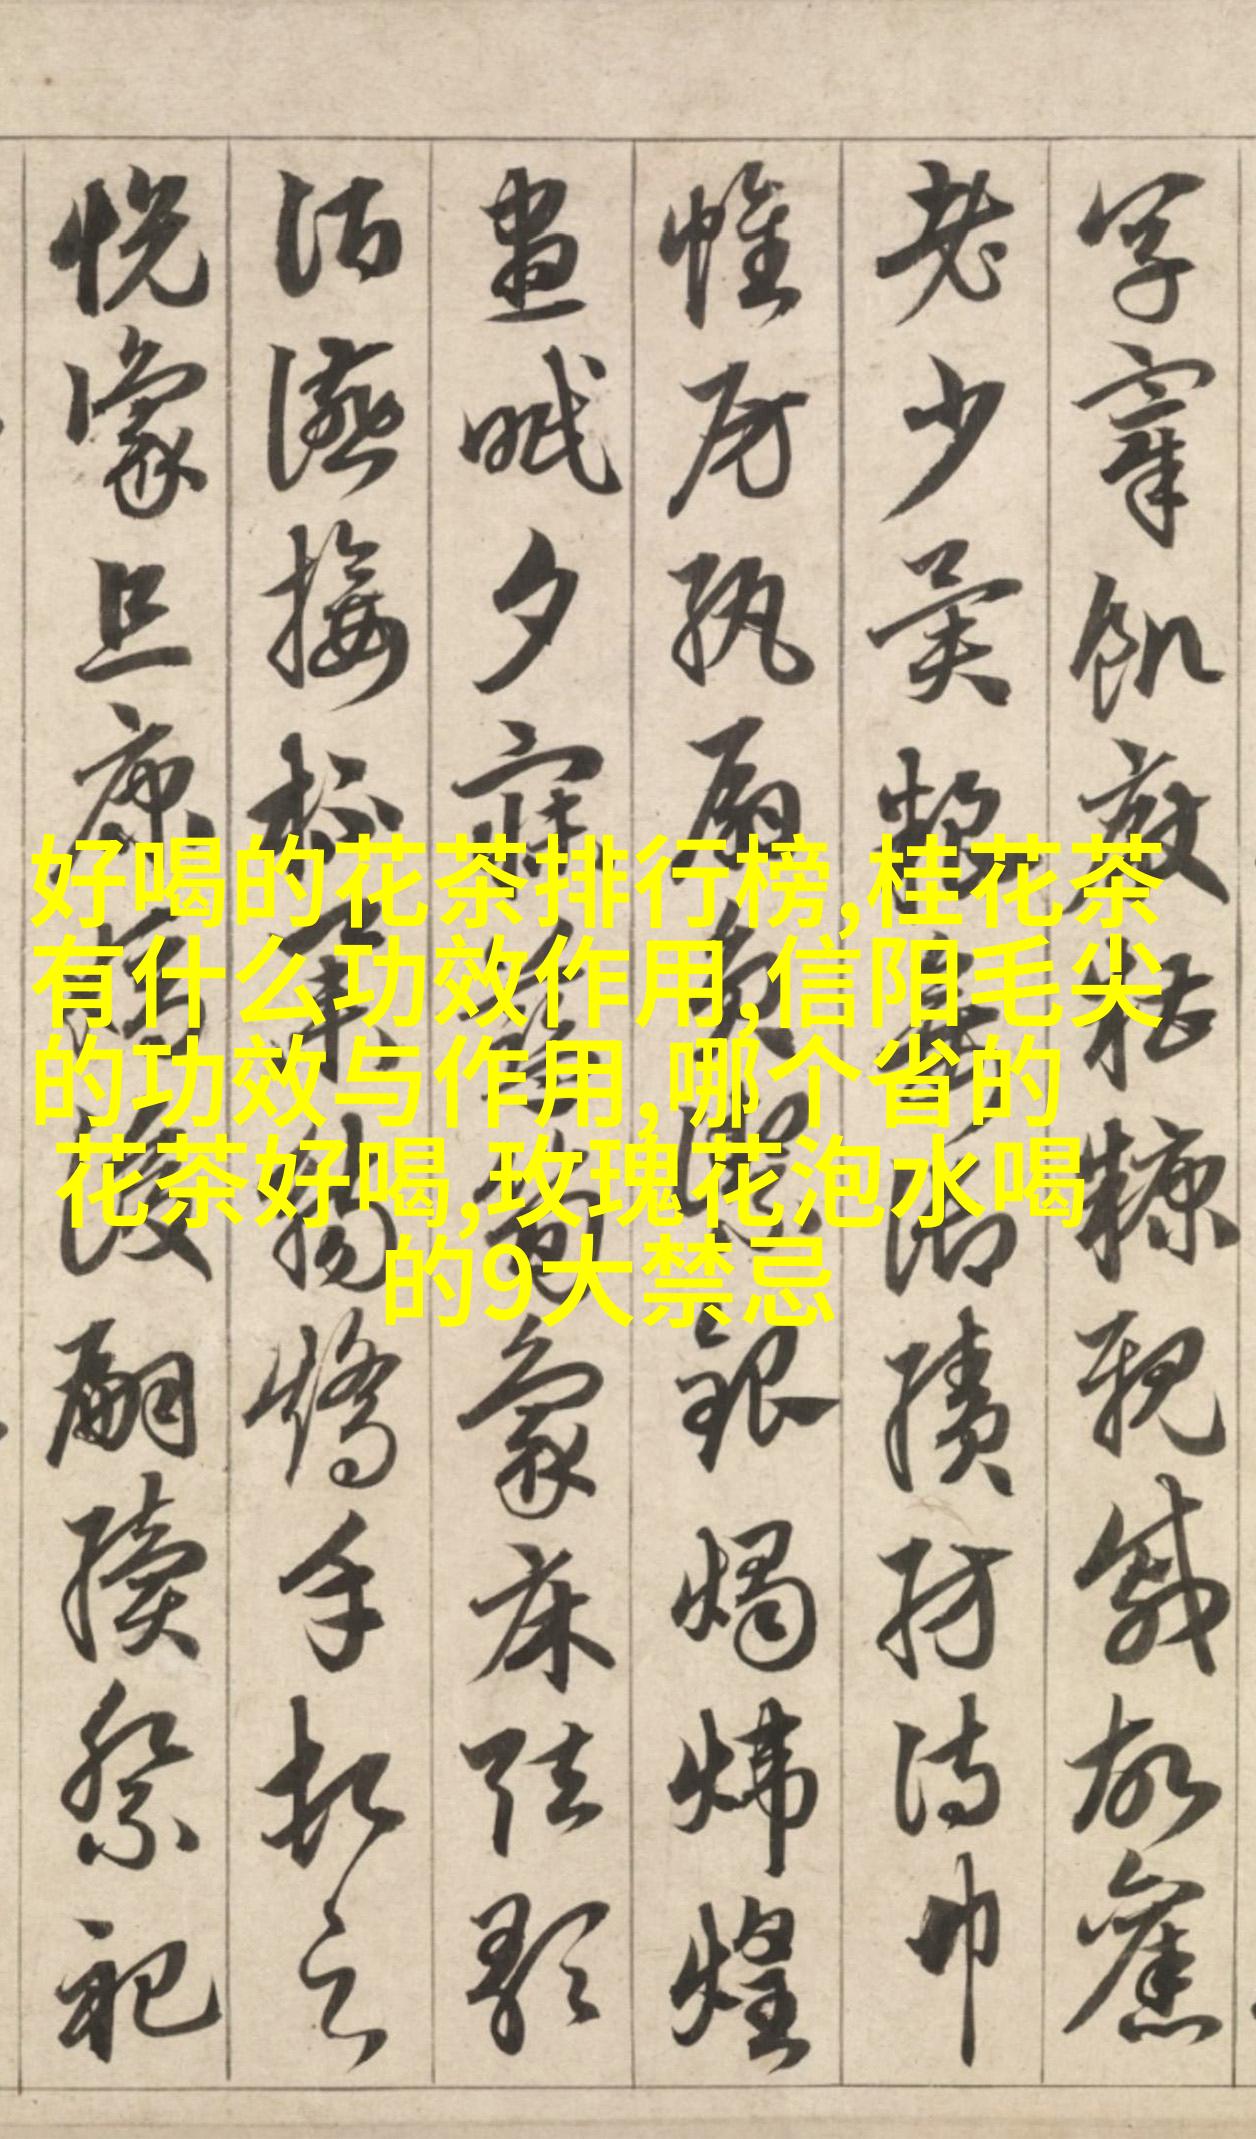 宰飢厭糟糠親戚故舊
老少異糧妾御績紡侍巾
帷房紈扇圓潔銀燭煒煌
晝眠夕寐藍筍象床弦歌
酒讌接杯舉觴矯手頓足
悅豫且康嫡後嗣續祭祀
好喝的花茶排行榜,桂花茶
有什么功效作用,信阳毛尖
的功效与作用,哪个省的
花茶好喝,玫瑰花泡水喝
的9大禁忌